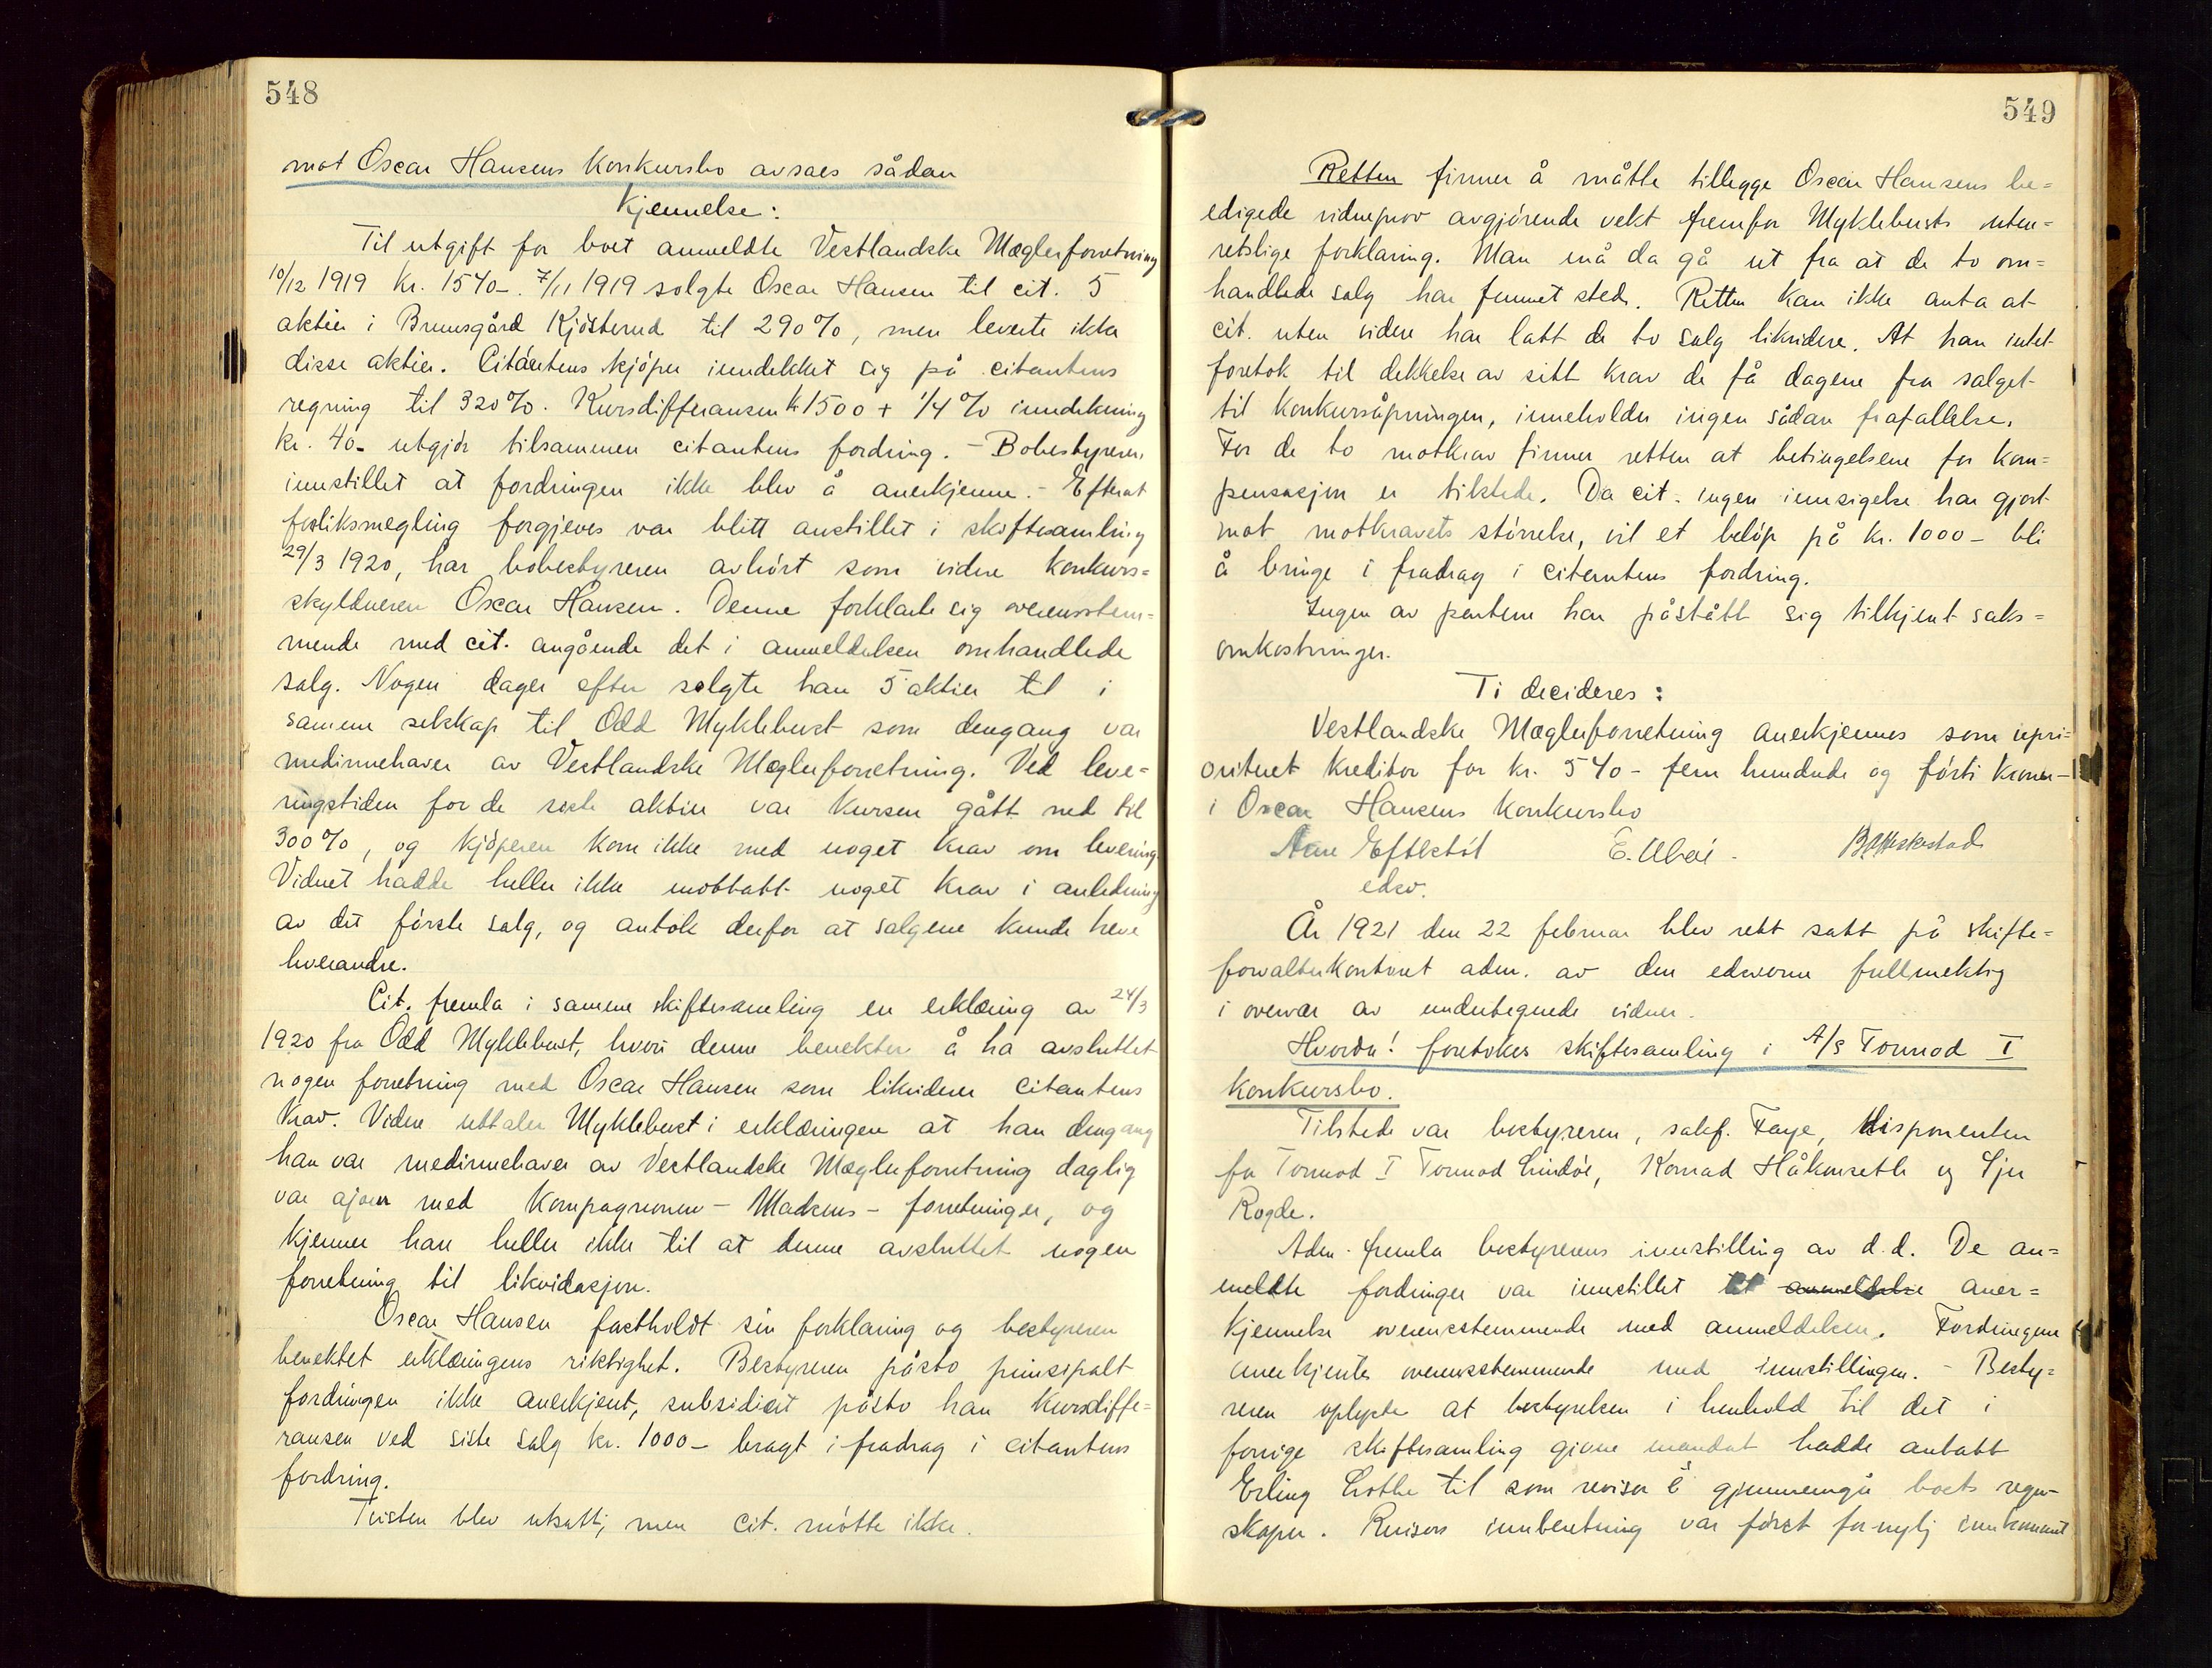 548
mot Oscar Hansens konkursbo avsaes sådan
Kjennelse:
Til utgift for boet anmeldte Vestlandske Mæglerforretning
10/12 1919 kr. 1540-. 7/11 1919 solgte Oscar Hansen til cit. 5
aktier i Brunsgård Kjösterud til 290%, men leverte ikke
disse aktier. Citantens kjöper inndekket sig på citantens
regning til 320%. Kursdifferansen kr 1500 + 1/4% inndekning
kr. 40- utgjör tilsammen citantens fordring. - Bobestyreren
innstillet at fordringen ikke blev å anerkjenne. - Efterat
forliksmegling forgjeves var blitt anstillet i skiftesamling
29/3 1920, har bobestyreren avhört som vidne konkurs=
skyldneren Oscar Hansen. Denne forklarte sig overensstem=
mende med cit. angående det i anmeldelsen omhandlede
salg. Nogen dager efter solgte han 5 aktier til i
samme selskap til Odd Myklebust som dengang var
medinnehaver av Vestlandske Mæglerforretning. Ved leve=
ringstiden for de siste aktier var kursen gått ned til
300%, og kjöperen kom ikke med noget krav om levering.
Vidnet hadde heller ikke mottatt noget krav i anledning
av det förste salg, og antok derfor at salgene kunde heve
hverandre.
Cit. fremla i samme skiftesamling en erklæring av 24/3
1920 fra Odd Myklebust, hvori denne benekter å ha avsluttet
nogen forretning med Oscar Hansen som likviderer citantens
krav. Videre uttaler Myklebust i erklæringen at han dengang
han var medinnehaver av Vestlandske Mæglerforretning daglig
var ajour med kompagnonen - Madsens - forretninger, og
kjenner han heller ikke til at denne avsluttet nogen
forretning til likvidasjon.
Oscar Hansen fastholdt sin forklaring og bestyreren
benektet erklæringens riktighet. Bestyreren påsto prinsipalt
fordringen ikke anerkjent, subsidiært påsto han kursdiffe=
ransen ved siste salg kr. 1000- bragt i fradrag i citantens
fordring.
Tvisten blev utsatt, men cit. mötte ikke.
549
Retten finner å måtte tillegge Oscar Hansens be=
edigede vidneprov avgjörende vekt fremfor Myklebusts uten=
retslige forklaring. Man må da gå ut fra at de to om=
handlede salg har funnet sted. Retten kan ikke anta at
cit. uten videre har latt de to salg likvidere. At han intet
foretok til dekkelse av sitt krav de få dagene fra salget
til konkursåpningen, inneholder ingen sådan frafallelse.
For de to motkrav finner retten at betingelsene for kom=
pensasjon er tilstede. Da cit. ingen innsigelse har gjort
mot motkravets störrelse, vil et belöp på kr. 1000- bli
å bringe i fradrag i citantens fordring.
Ingen av partene har påstått sig tilkjent saks=
omkostninger.
Ti decideres:
Vestlandske Mæglerforretning anerkjennes som upri=
oritert kreditor for kr. 540- fem hundrede og förti kroner-
i Oscar Hansens konkursbo
Aan Eftestöl E. Uböe.
edsv.
År 1921 den 22 februar blev rett satt på skifte=
forvalterkontoret adm. av den edsvorne fullmektig
i overvær av undertegnede vidner.
Hvorda! foretokes skiftesamling i A/S Tormod I
konkursbo.
Tilstede var bestyreren, sakf. Faye, disponenten
for Tormod I Tormod Lindöe, Konrad Håkonseth og Sju
Rogde.
Adm. fremla bestyrerens innstilling av d.d. De an=
meldte fordringer var innstillet til anmeldelse aner=
kjennelse overensstemmende med anmeldelsen. Fordringene
anerkjentes overensstemmende med innstillingen. - Besty=
reren oplyste at bestyrelsen i henhold til det i
forrige skiftesamling givne mandat hadde antatt
Erling Lothe til som revisor å gjennemgå boets regn=
skaper. Revisors innberetning var först fornylig innkommet